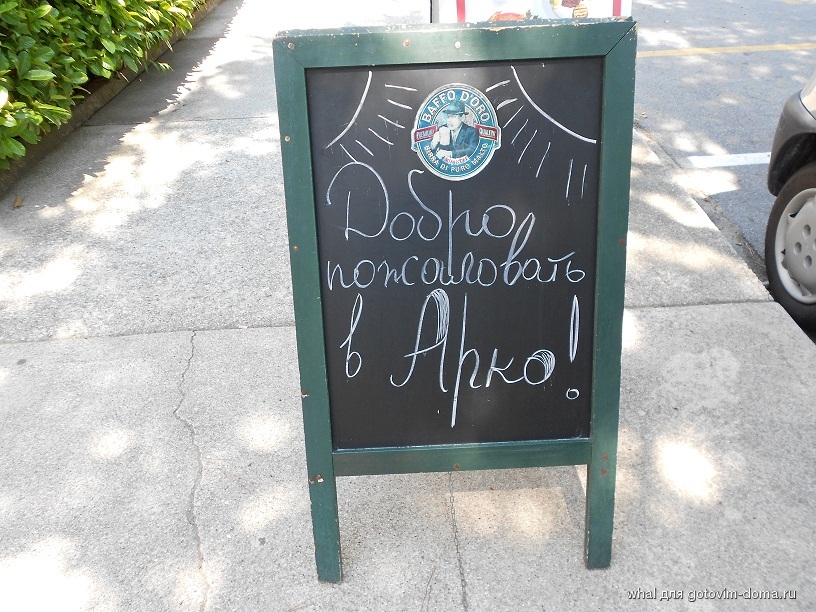 BAFFO D'ORO
PREMIUM QUALITY
BIRRA DI PURO MALTO
Добро
пожаловать
в Арко!
whal для gotovim-doma.ru